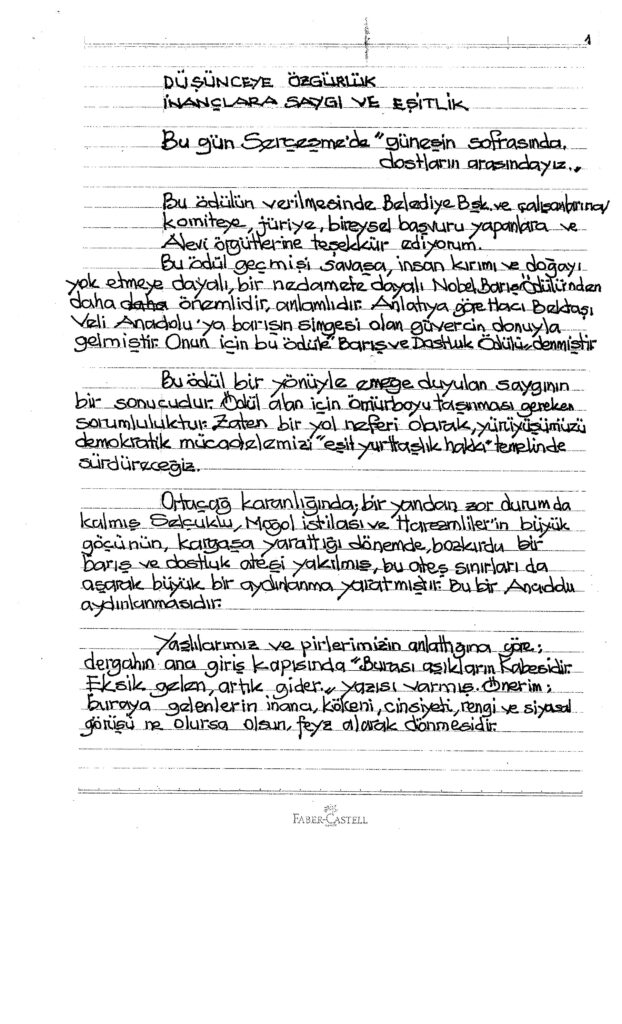 1
DÜŞÜNCEYE ÖZGÜRLÜK
İNANÇLARA SAYGI VE EŞİTLİK
Bu gün Serçeşme'de "güneşin sofrasında,
dostların arasındayız.,,
Bu ödülün verilmesinde Belediye Bşk. ve çalışanlarına,
komiteye, jüriye, bireysel başvuru yapanlara ve
Alevi örgütlerine teşekkür ediyorum.
Bu ödül geçmişi savaşa, insan kırımı ve doğayı
yok etmeye dayalı, bir nedamete dayalı Nobel Barış Ödülünden
daha daha önemlidir, anlamlıdır. Anlatıya göre Hacı Bektaşı
Veli Anadolu'ya barışın simgesi olan güvercin donuyla
gelmiştir. Onun için bu ödüle "Barış ve Dostluk Ödülü,, denmiştir
Bu ödül bir yönüyle emeğe duyulan saygının
bir sonucudur. Ödül alan için ömürboyu taşınması gereken
sorumluluktur. Zaten bir yol neferi olarak, yürüyüşümüzü
demokratik mücadelemizi "eşit yurttaşlık hakkı" temelinde
sürdüreceğiz.
Ortaçağ karanlığında, bir yandan zor durumda
kalmış Selçuklu, Moğol istilası ve Harzemliler'in büyük
göçünün, kargaşa yarattığı dönemde, bozkırdu bir
barış ve dostluk ateşi yakılmış, bu ateş sınırları da
aşarak büyük bir aydınlanma yaratmıştır. Bu bir Anadolu
aydınlanmasıdır.
Yaşlılarımız ve pirlerimizin anlattığına göre;
dergahın ana giriş kapısında "Burası aşıkların Kabesidir.
Eksik gelen, artık gider.,, yazısı varmış. Önerim;
buraya gelenlerin inancı, kökeni, cinsiyeti, rengi ve siyasal
görüşü ne olursa olsun, feyz alarak dönmesidir.
FABER-CASTELL